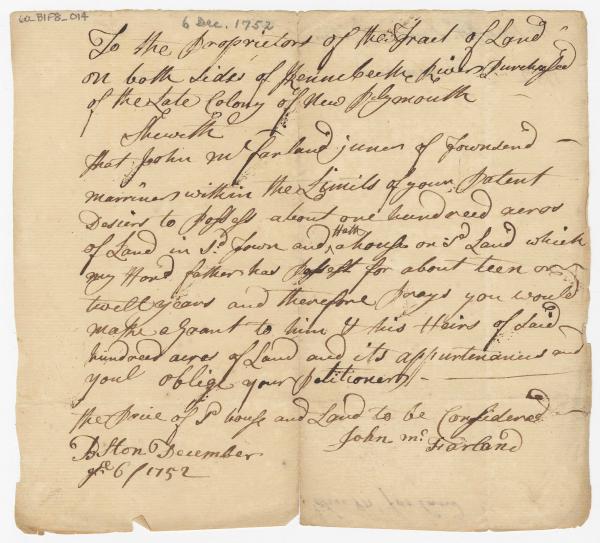 60_B1F8_014
6 Dec. 1752
To the Proprietors of the Tract of Land
on both sides of Kennebeck River Purchased
of the Late Colony of New Plymouth
Sheweth
That John Mc Farland juner of Townsend
marriner within the Limits of your Patent
Desiers to Possess about one hundreed acros
of Land in Sd. Town and Hath a house on Sd Land which
my Hond father has Possest for about teen or
twelt years and therefore Prays you would
make a Grant to him & his Heirs of Said
hundreed acres of Land and its appurtenances and
youl oblige your Petitioner
the Price of Sd house and Land to be Considered
John Mc Farland
Boston December
ye 6 / 1752